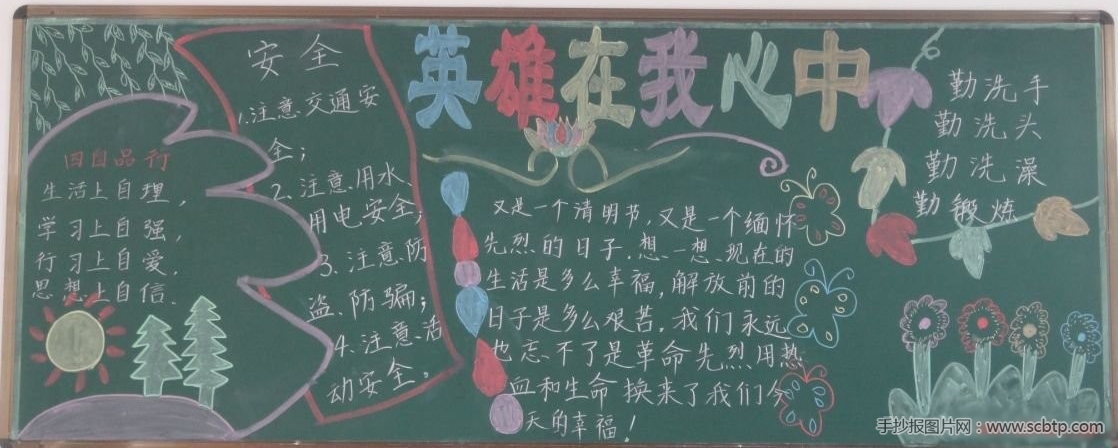 英雄在我心中
四自品行
生活上自理，
学习上自强，
行习上自爱，
思想上自信、
安全
1.注意交通安
全；
2、注意用水、
用电安全；
3、注意防
盗、防骗；
4、注意活
动安全。
又是一个清明节，又是一个缅怀
先烈的日子，想一想现在的
生活是多么幸福，解放前的
日子是多么艰苦，我们永远
也忘不了是革命先烈用热
血和生命换来了我们今
天的幸福！
勤洗手
勤洗头
勤洗澡
勤锻炼
手抄报图片网：www.scbtp.com